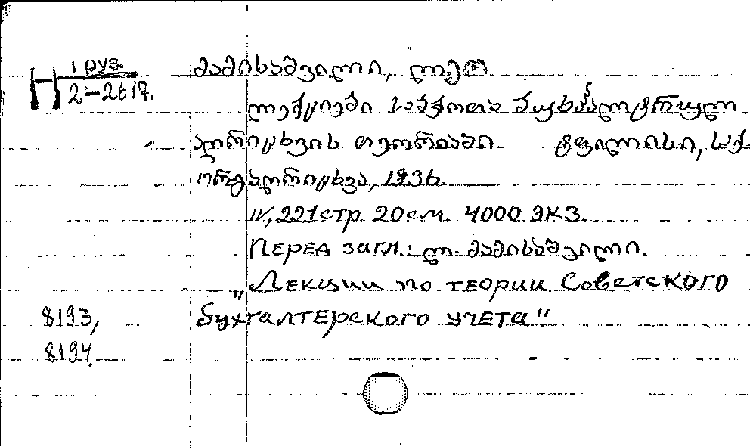 1 груз.
П 2-2617.
მამისაშვილი, ლეო
ლექციები საბჭოთა ბუხჰალტრულ
აღრიცხვის თეორიაში ტფილისი, სახ.
აღრიცხვა, 1936.
IV, 221 стр. 20 см. 4000 экз.
Перед загл.: ლ. მამისაშვილი.
„Лекции по теории Советского
бухгалтерского учета"
8193,
8194.